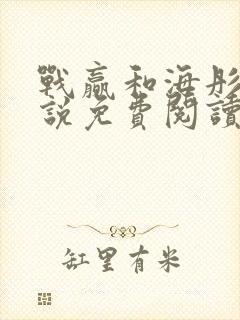 戰贏和海彤
說免費閱讀
缸里有米